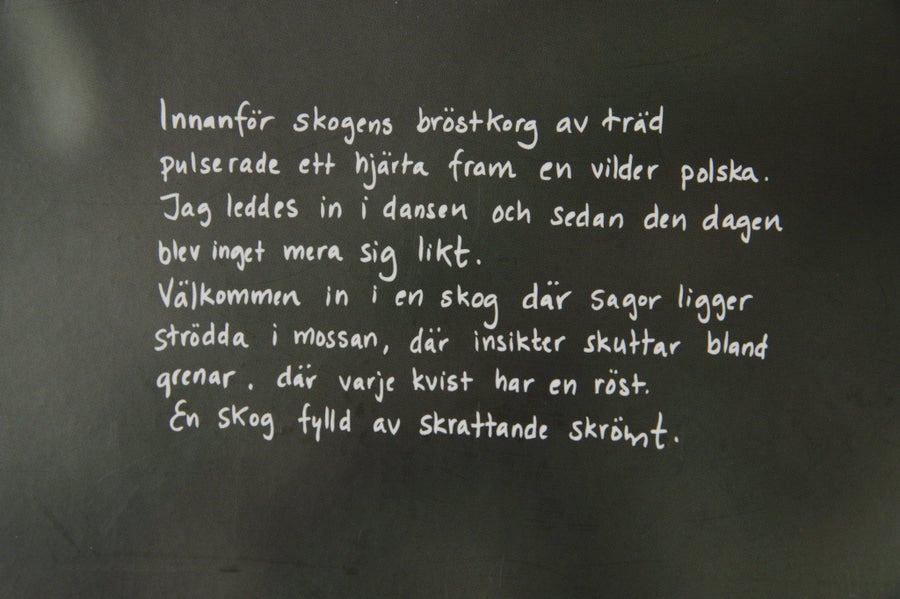 Innanför skogens bröstkorg av träd
pulserade ett hjärta fram en vilder polska.
Jag leddes in i dansen och sedan den dagen
blev inget mera sig likt.
Välkommen in i en skog där sagor ligger
strödda i mossan, där insikter skuttar bland
grenar. där varje kvist har en röst.
En skog fylld av skrattande skrömt.